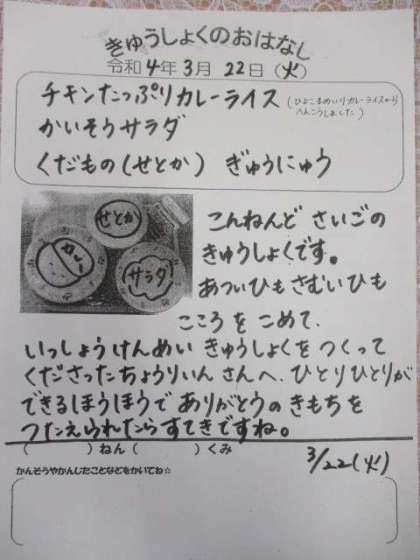 きゅうしょくのおはなし
令和4年3月22日(火)
チキンたっぷりカレーライス
(ひよこまめいりカレーライスから
へんこうしました)
かいそうサラダ
くだもの(せとか) ぎゅうにゅう
せとか
カレー
サラダ
こんねんど さいごの
きゅうしょくです。
あついひも さむいひも
こころを こめて、
いっしょうけんめい きゅうしょくを つくって
くださったちょうりいん さんへ、ひとりひとりが
できるほうほうで ありがとうの きもちを
つたえられたらすてきですね。
( )ねん( )くみ
3/22(火)
かんそうやかんしたことなどをかいてね☆